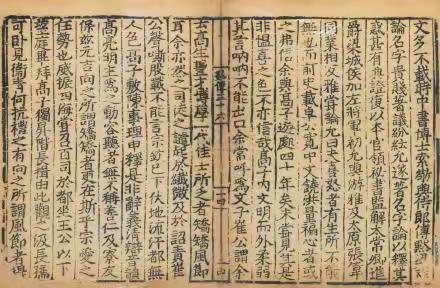 文多不載時中書博士索敞與侍郎傅默梁祚
論名字貴賤著議紛紜允遂著名字論以釋其
惑甚有典證復以本官領秘書監解太常卿進
爵梁城侯加左將軍初允與游雅及太原張偉
同業相友雅嘗論允曰夫喜怒者有生所不能
無也而前史載卓公寬中文饒洪量褊心者或
之弗信余與高子遊處四十年矣未嘗見其是
非慍喜之色不亦信哉高子內文明而外柔弱
其言吶吶不能出口余常呼為文子崔公謂余
云高生豐才博學一代佳士所乏者矯矯風節
耳余亦然之司徒之譴起於纖微及於詔責崔
公聲嘶股戰不能言宗欽已下伏地流汗都無
人色高子敷陳事理申釋是非辭義清辯音韻
高亮明主爲之動容聽者無不稱善仁及寮友
保茲元吉向之所謂矯矯者更在斯乎宗愛之
任勢也威振四海嘗召百司於都坐王公以下
望庭畢拜高子獨昇階長揖由此觀之汲長孺
可臥見衛青何抗禮之有向之所謂風節者得